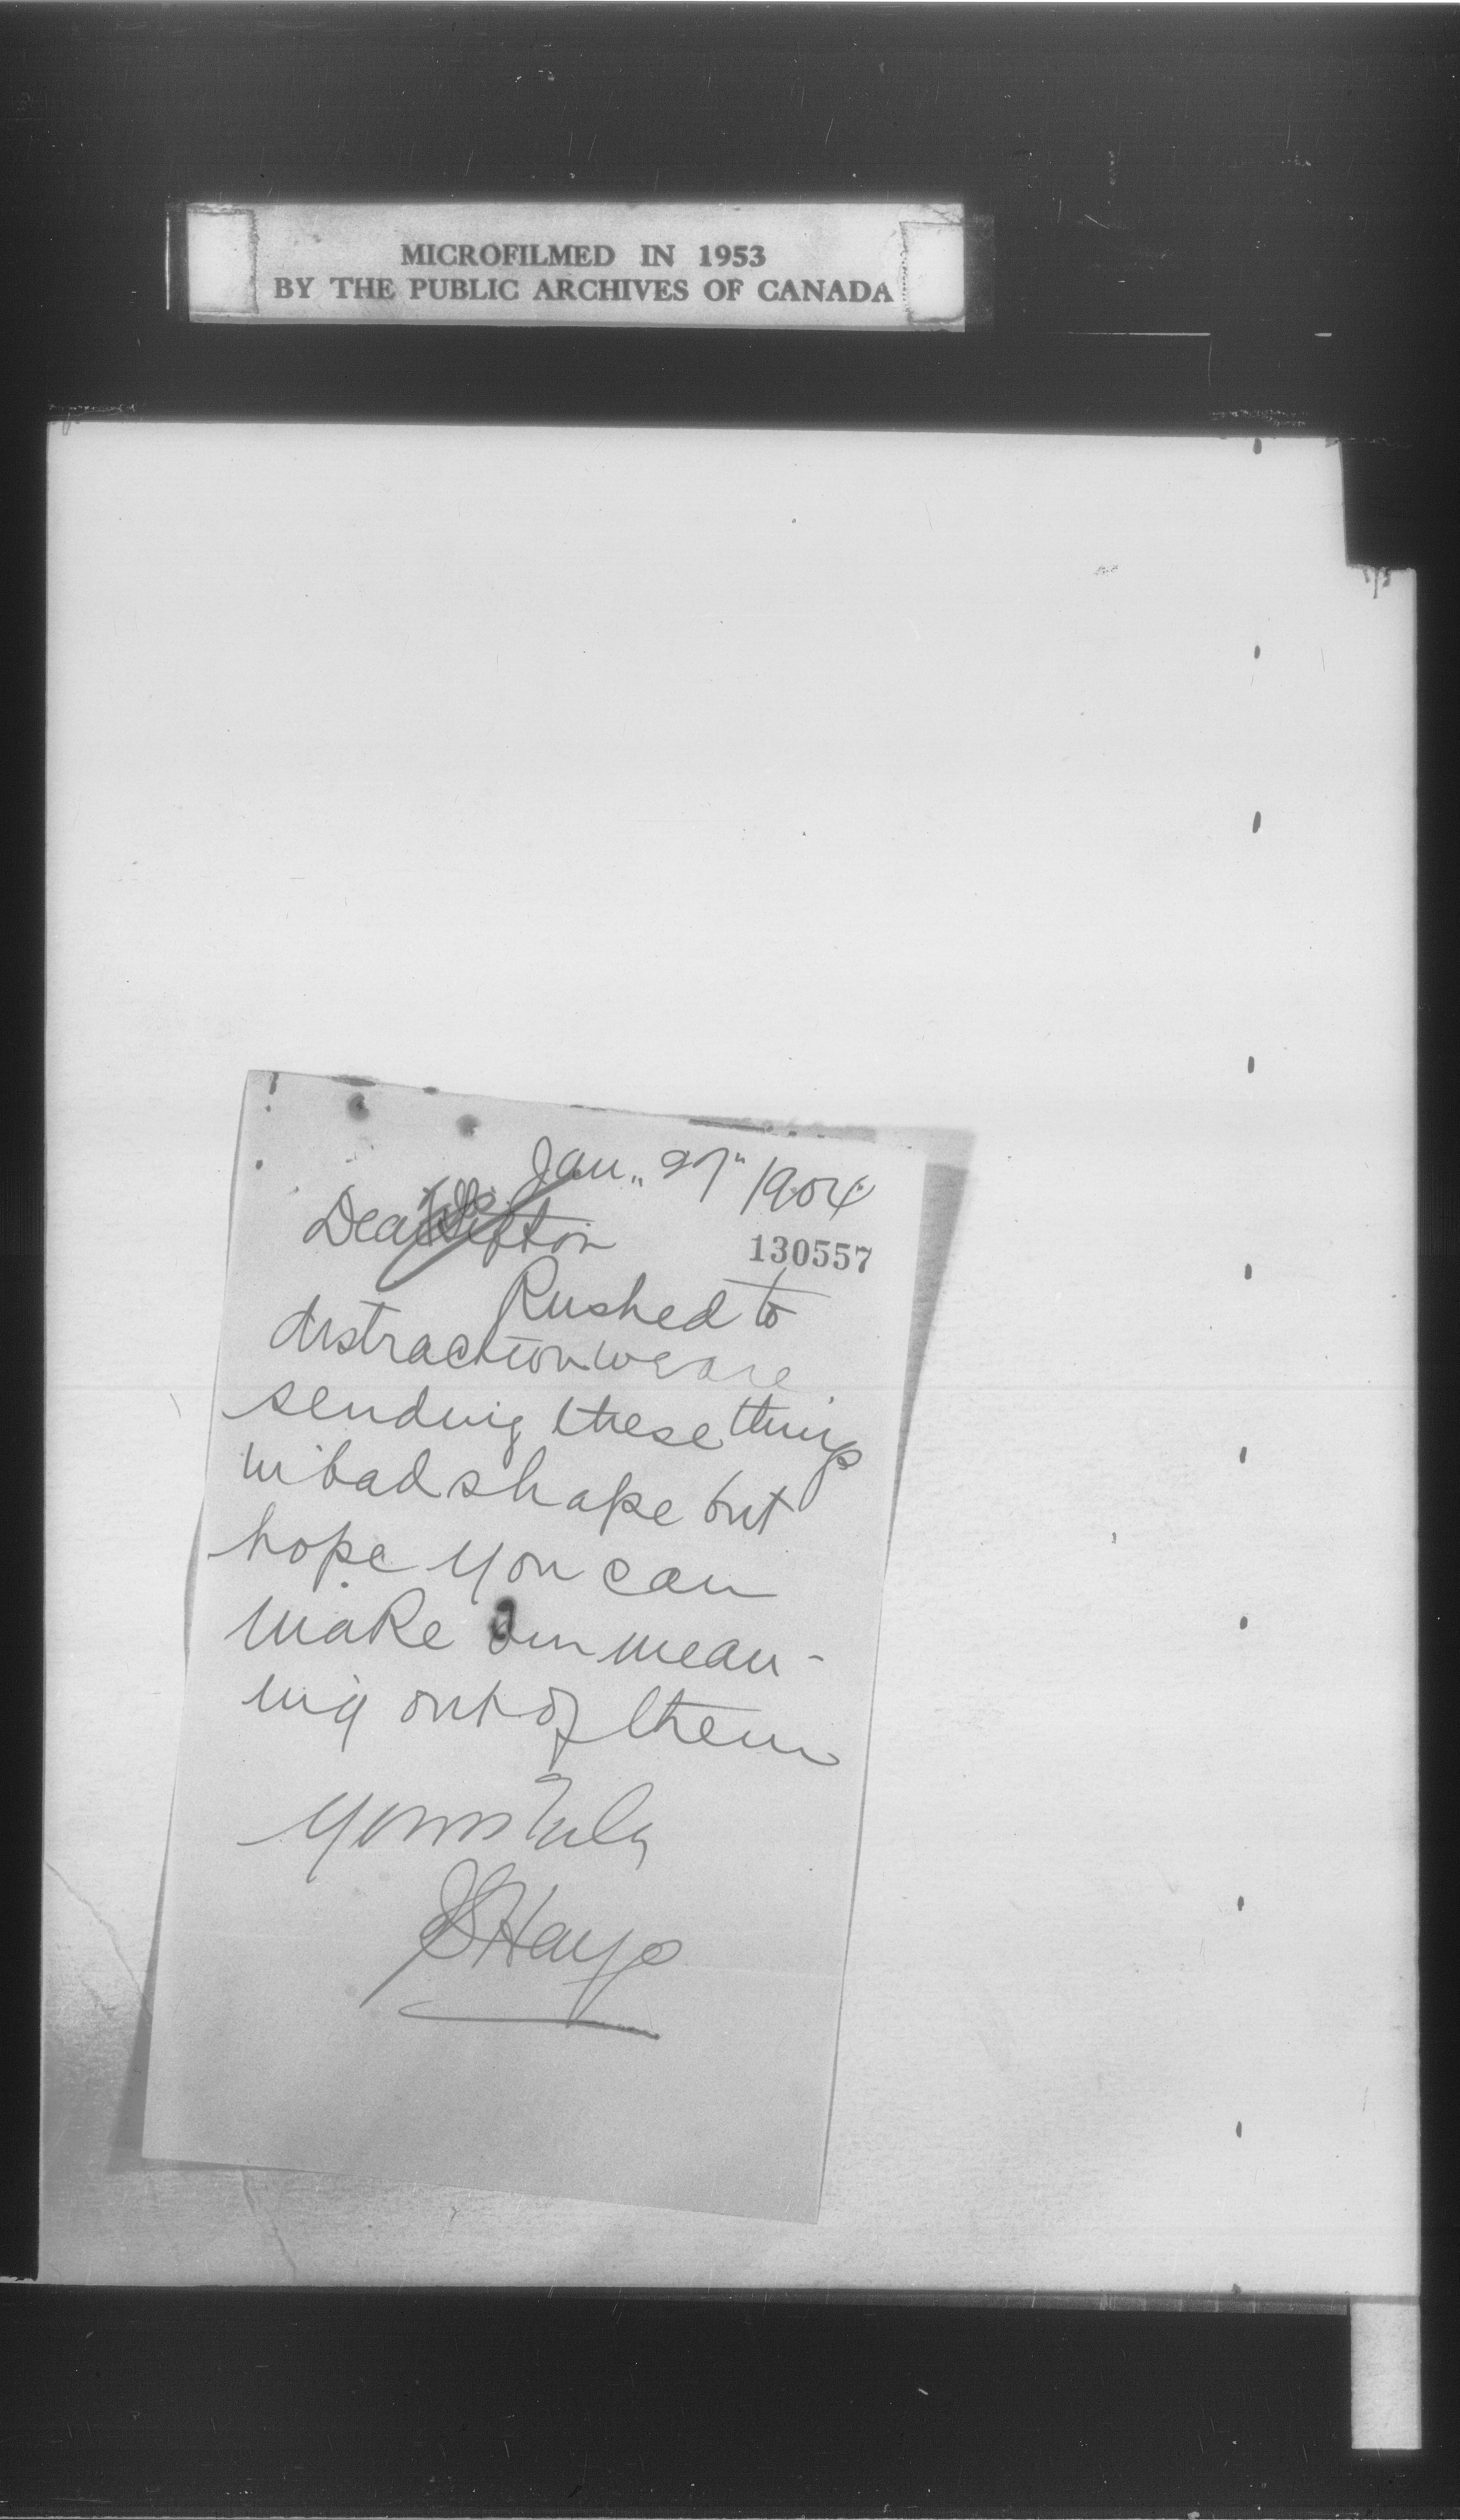 MICROFILMED IN 1953
BY THE PUBLIC ARCHIVES OF CANADA
Jan. 27" 1904
Dear Sifton
130557
Rushed to
distraction we are
sending these things
in bad shape but
hope you can
make our mean-
ing out of them
Yours truly
Hays